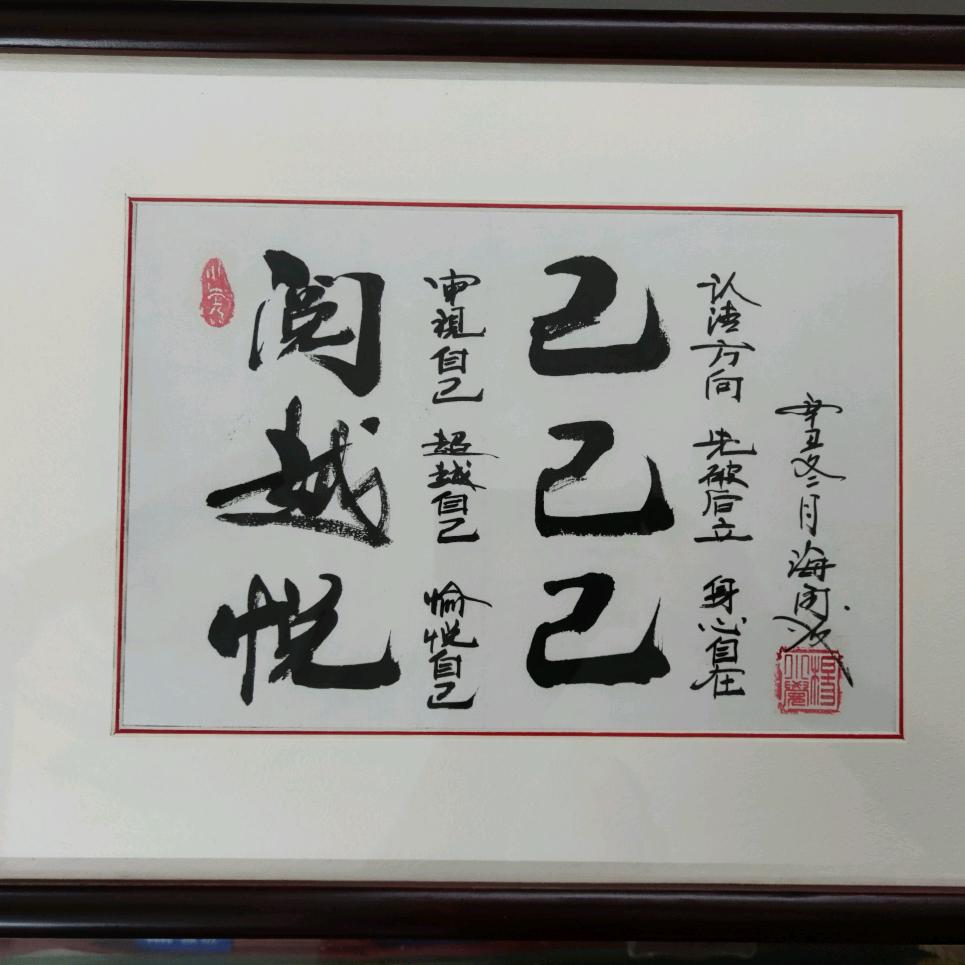 阅 越 悦
审視自己 超越自己 愉悦自己
己 己 己
认清方向 先破后立 身心自在
辛丑冬二月 海